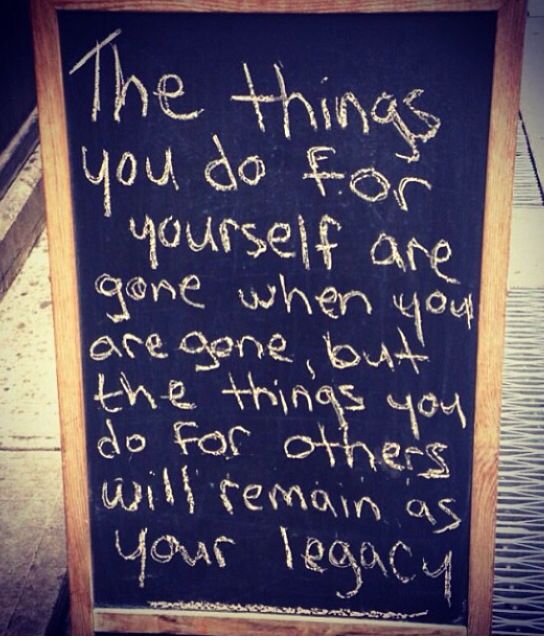 The things
you do for
yourself are
gone when you
are gone, but
the things you
do for others
will remain as
your legacy